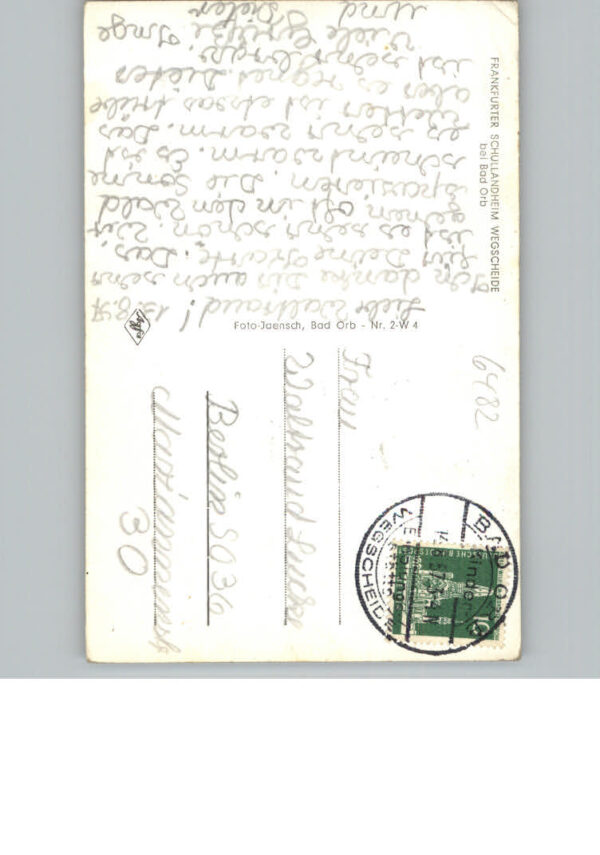 Liebe Waltraud!
Ich danke Dir auch sehr
für Deine Karte. Das
ist es sehr schön. Wir
gehen oft in den Wald
spazieren. Die Sonne
scheint warm. Es ist
es sehr warm. Das
Wetter ist etwas trübe
aber es regnet Dieter
ist sehr brav.
Viele Grüße Inge
und Dieter
FRANKFURTER SCHULLANDHEIM WEGSCHEIDE
bei Bad Orb
Foto-Jaensch, Bad Orb - Nr. 2-W 4
Agfa
6482
Frau
Waltraud
Berlin SO 36
30
BAD ORB
WEGSCHEIDE
10